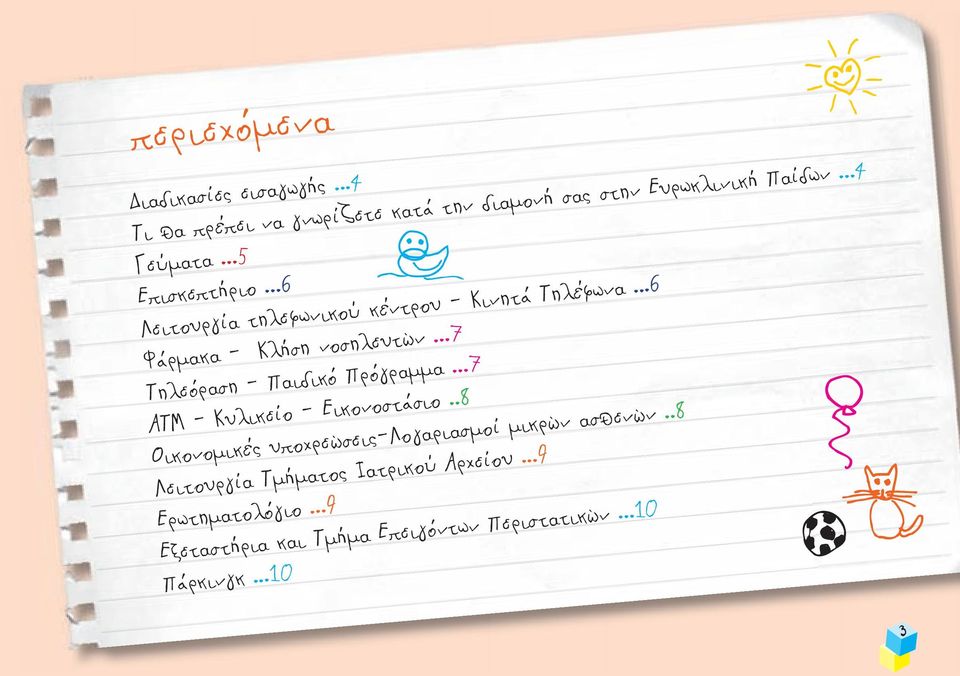 περιεχόμενα
Διαδικασίες εισαγωγής ...4
Τι θα πρέπει να γνωρίζετε κατά την διαμονή σας στην Ευρωκλινική Παίδων ...4
Γεύματα ...5
Επισκεπτήριο ...6
Λειτουργία τηλεφωνικού κέντρου - Κινητά Τηλέφωνα ...6
Φάρμακα - Κλήση νοσηλευτών ...7
Τηλεόραση - Παιδικό Πρόγραμμα ...7
ΑΤΜ - Κυλικείο - Εικονοστάσιο ..8
Οικονομικές υποχρεώσεις-Λογαριασμοί μικρών ασθενών ..8
Λειτουργία Τμήματος Ιατρικού Αρχείου ...9
Ερωτηματολόγιο ...9
Εξεταστήρια και Τμήμα Επειγόντων Περιστατικών ...10
Πάρκινγκ ...10
3